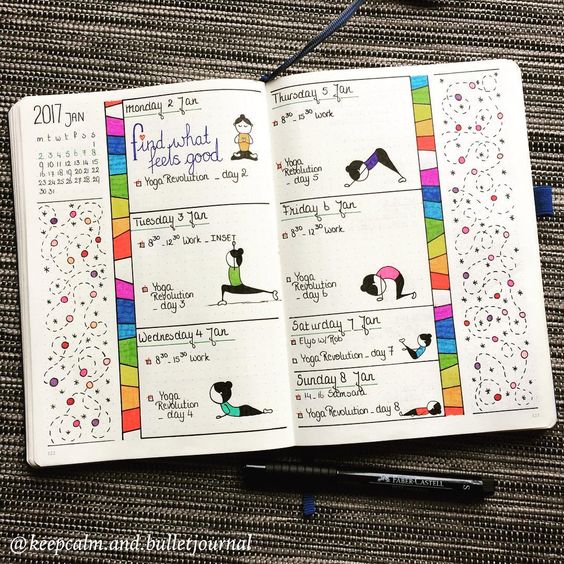 2017 JAN
m t w t f s s
1
2 3 4 5 6 7 8
9 10 11 12 13 14 15
16 17 18 19 20 21 22
23 24 25 26 27 28 29
30 31
monday 2 Jan
find what
feels good
Yoga Revolution - day 2
Tuesday 3 Jan
8³⁰ - 12³⁰ work - INSET
Yoga
Revolution
day 3
Wednesday 4 Jan
8³⁰ - 15³⁰ work
Yoga
Revolution
day 4
Thursday 5 Jan
8³⁰ - 15³⁰ Work
Yoga
Revolution
day 5
Friday 6 Jan
8³⁰ - 12³⁰ Work
Yoga
Revolution
day 6
Saturday 7 Jan
Elys w/Rob
Yoga Revolution - day 7
Sunday 8 Jan
14 - 16 Samsara
Yoga Revolution - day 8
FABER-CASTELL
S
@keepcalm.and.bulletjournal